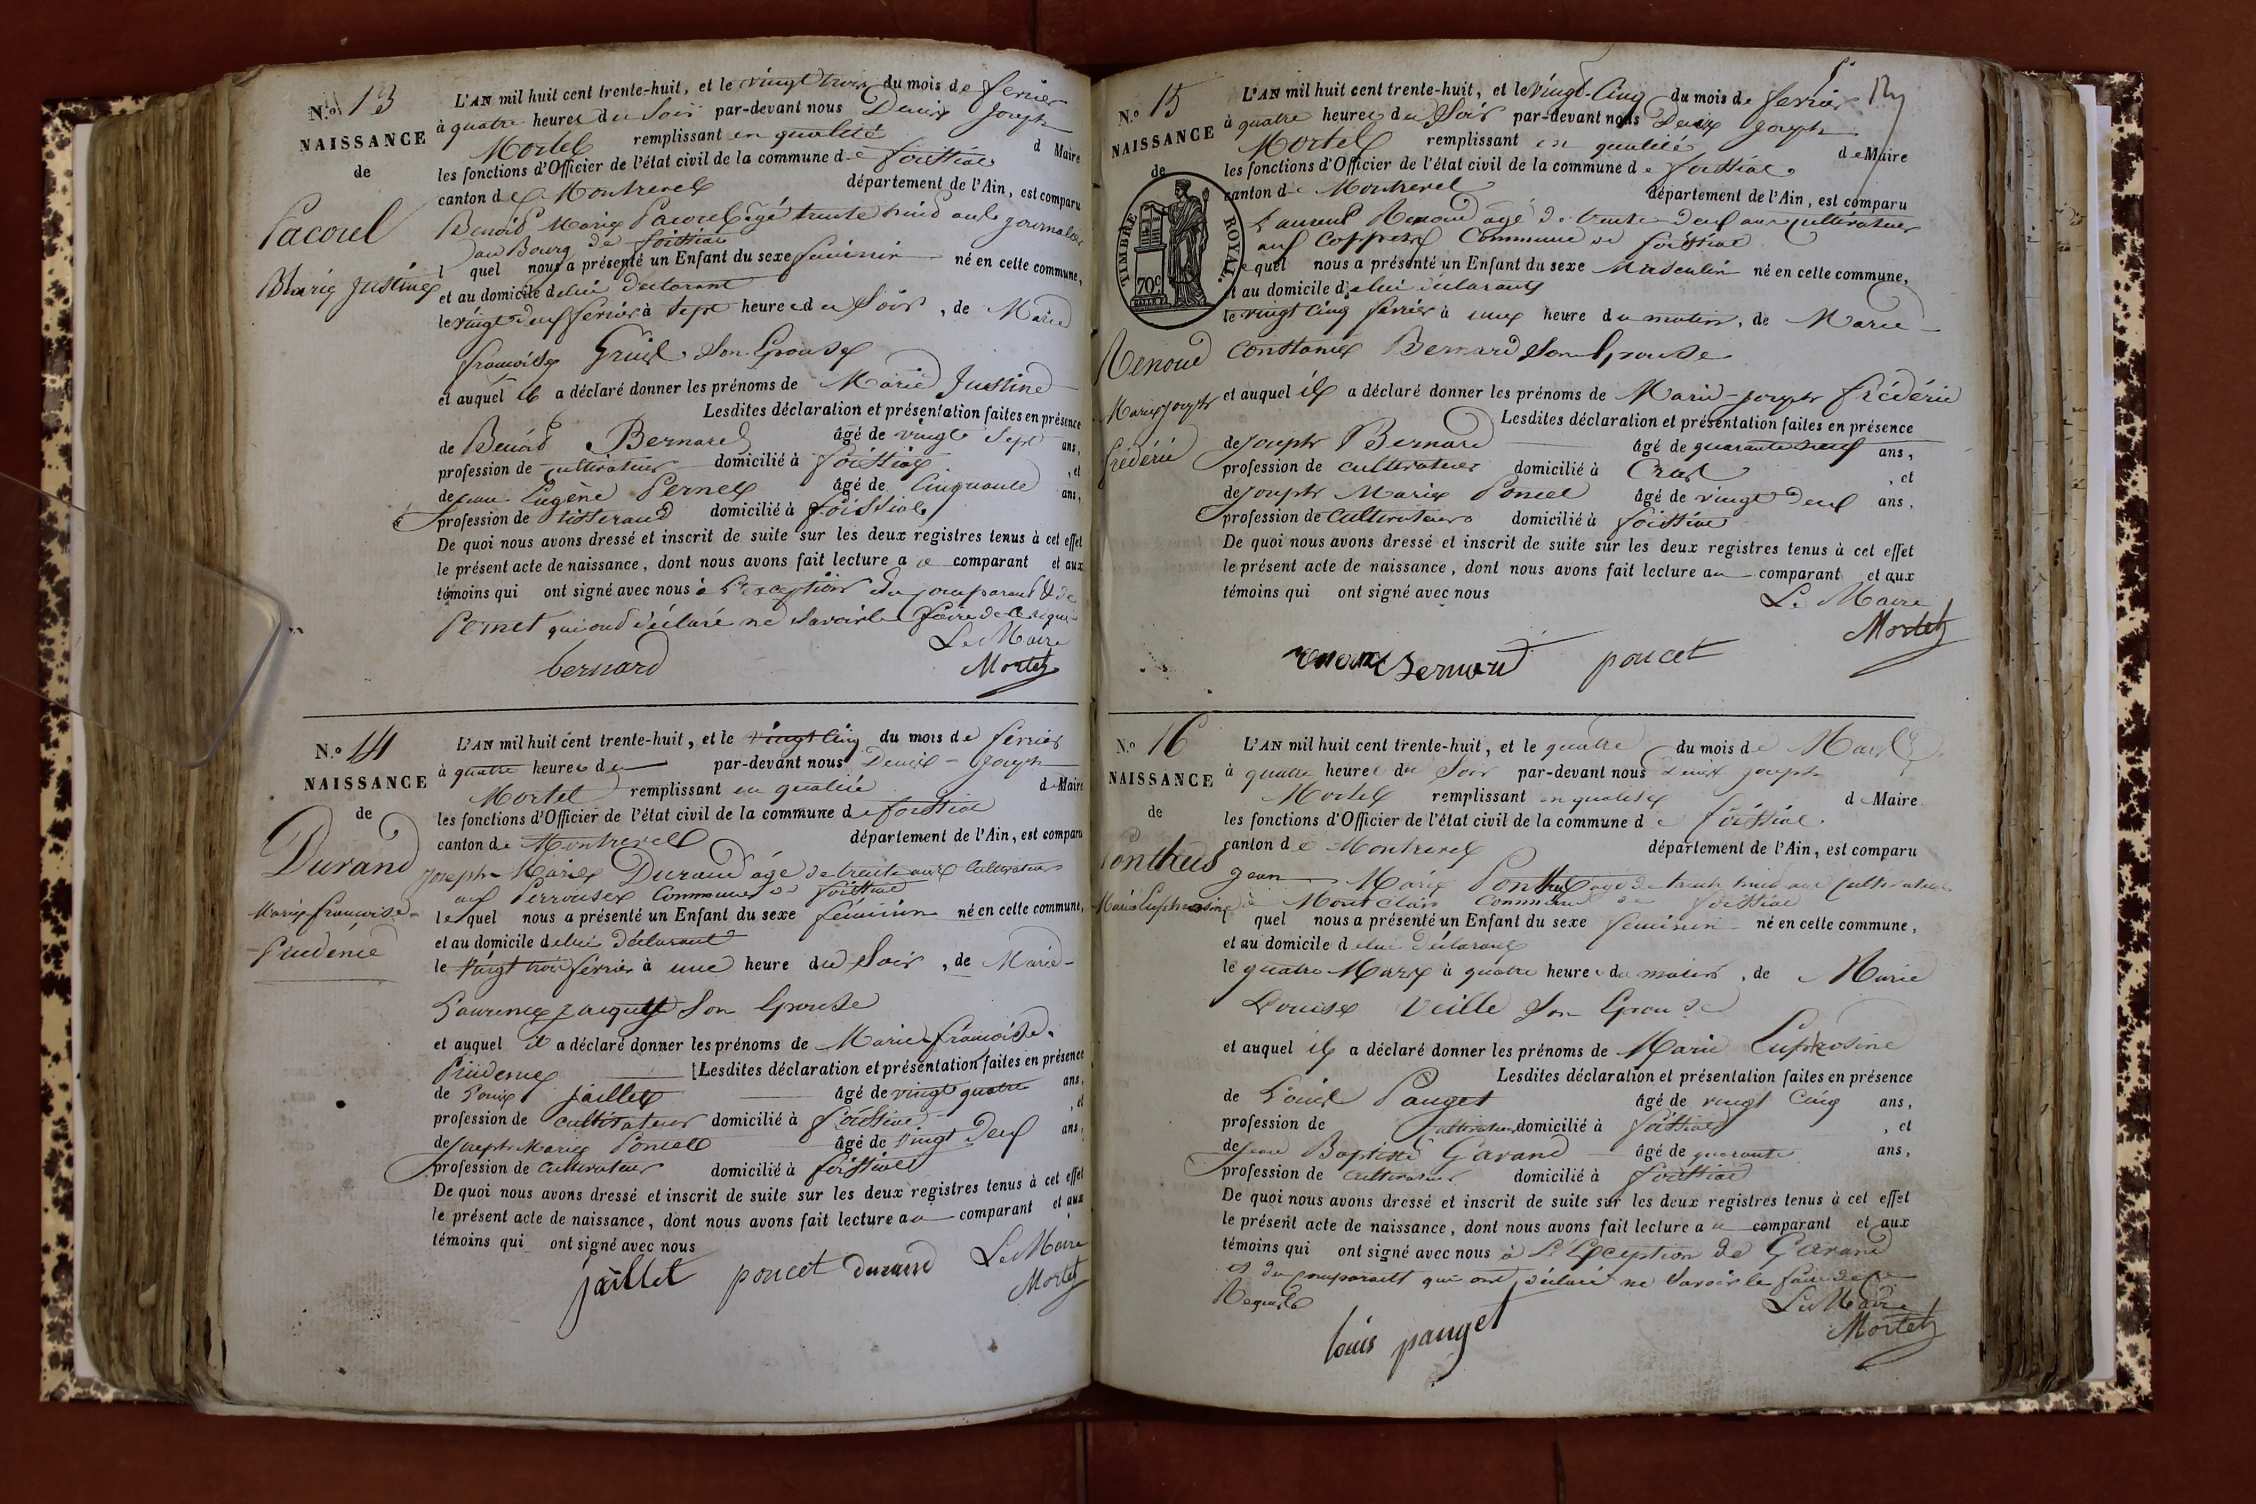 N.º 13
NAISSANCE
de
Pacoret
Marie Justine
L'AN mil huit cent trente-huit, et le vingt trois du mois de fevrier
à quatre heures du Soir par-devant nous Denis Joseph
Mortel remplissant en qualité d Maire
les fonctions d'Officier de l'état civil de la commune de foissiat
canton de Montrevel département de l'Ain, est comparu
Benoit Marie Pacoret âgé trente huit ans journalier
au Bourg de foissiat
l quel nous a présenté un Enfant du sexe féminin né en cette commune,
et au domicile de lui déclarant
le vingt deux fevrier à sept heures du Soir, de Marie
françoise Son Epouse
et auquel il a déclaré donner les prénoms de Marie Justine
Lesdites déclaration et présentation faites en présence
de Benoit Bernard âgé de vingt Sept ans,
profession de cultivateur domicilié à foissiat , et
de jean Eugène Pernet âgé de Cinquante ans,
profession de tisserand domicilié à foissiat
De quoi nous avons dressé et inscrit de suite sur les deux registres tenus à cet effet
le présent acte de naissance, dont nous avons fait lecture a u comparant et aux
témoins qui ont signé avec nous à l'exception du comparant et de
Pernet qui ont déclaré ne Savoir le faire de ce requis
Le Maire
bernard Mortel
N.º 14
NAISSANCE
de
Durand
Marie françoise
Prudence
L'AN mil huit cent trente-huit, et le vingt cinq du mois de fevrier
à quatre heures du par-devant nous Denis Joseph
Mortel remplissant en qualité de Maire
les fonctions d'Officier de l'état civil de la commune de foissiat
canton de Montrevel département de l'Ain, est comparu
joseph Marie Durand âgé de trente ans Cultivateur
aux Perrouses Commune de foissiat
le quel nous a présenté un Enfant du sexe féminin né en cette commune,
et au domicile de lui déclarant
le vingt trois fevrier à une heure du Soir, de Marie
Laurence Son Epouse
et auquel il a déclaré donner les prénoms de Marie françoise
Prudence Lesdites déclaration et présentation faites en présence
de Louis jaillet âgé de vingt quatre ans,
profession de cultivateur domicilié à foissiat , et
de joseph Marie Poncet âgé de vingt deux ans,
profession de cultivateur domicilié à foissiat
De quoi nous avons dressé et inscrit de suite sur les deux registres tenus à cet effet
le présent acte de naissance, dont nous avons fait lecture a u comparant et aux
témoins qui ont signé avec nous
Le Maire
jaillet poncet durand Mortel
N.º 15
NAISSANCE
de
TIMBRE ROYAL
70c
Renoud
Marie joseph
frédéric
L'AN mil huit cent trente-huit, et le vingt-Cinq du mois de fevrier
à quatre heures du Soir par-devant nous Denis Joseph
Mortel remplissant en qualité de Maire
les fonctions d'Officier de l'état civil de la commune de foissiat
canton de Montrevel département de l'Ain, est comparu
Laurent Renoud âgé de trente deux ans cultivateur
Commune de foissiat
le quel nous a présenté un Enfant du sexe Masculin né en cette commune,
et au domicile de lui déclarant
le vingt Cinq fevrier à une heure du matin, de Marie
Constance Bernard Son Epouse
et auquel il a déclaré donner les prénoms de Marie-joseph frédéric
Lesdites déclaration et présentation faites en présence
de joseph Bernard âgé de quarante neuf ans,
profession de cultivateur domicilié à Cras , et
de joseph Marie Poncet âgé de vingt deux ans,
profession de Cultivateur domicilié à foissiat
De quoi nous avons dressé et inscrit de suite sur les deux registres tenus à cet effet
le présent acte de naissance, dont nous avons fait lecture au comparant et aux
témoins qui ont signé avec nous
Le Maire
Mortel
renoud Bernard poncet
N.º 16
NAISSANCE
de
Ponthus
Marie Euphrosine
L'AN mil huit cent trente-huit, et le quatre du mois de Mars
à quatre heures du Soir par-devant nous Denis joseph
Mortel remplissant en qualité d Maire
les fonctions d'Officier de l'état civil de la commune de foissiat
canton de Montrevel département de l'Ain, est comparu
jean Marie Ponthus âgé de trente huit ans Cultivateur
à Mont Clair Commune de foissiat
l quel nous a présenté un Enfant du sexe féminin né en cette commune,
et au domicile de lui déclarant
le quatre Mars à quatre heures du matin, de Marie
Louise Veille Son Epouse
et auquel il a déclaré donner les prénoms de Marie Euphrosine
Lesdites déclaration et présentation faites en présence
de Louis Pauget âgé de vingt Cinq ans,
profession de Cultivateur domicilié à foissiat , et
de jean Baptiste Gavand âgé de quarante ans,
profession de cultivateur domicilié à foissiat
De quoi nous avons dressé et inscrit de suite sur les deux registres tenus à cet effet
le présent acte de naissance, dont nous avons fait lecture a u comparant et aux
témoins qui ont signé avec nous à L'Exception de Gavand
et du comparant qui ont déclaré ne Savoir le faire de ce
Requis
Le Maire
louis pauget Mortel